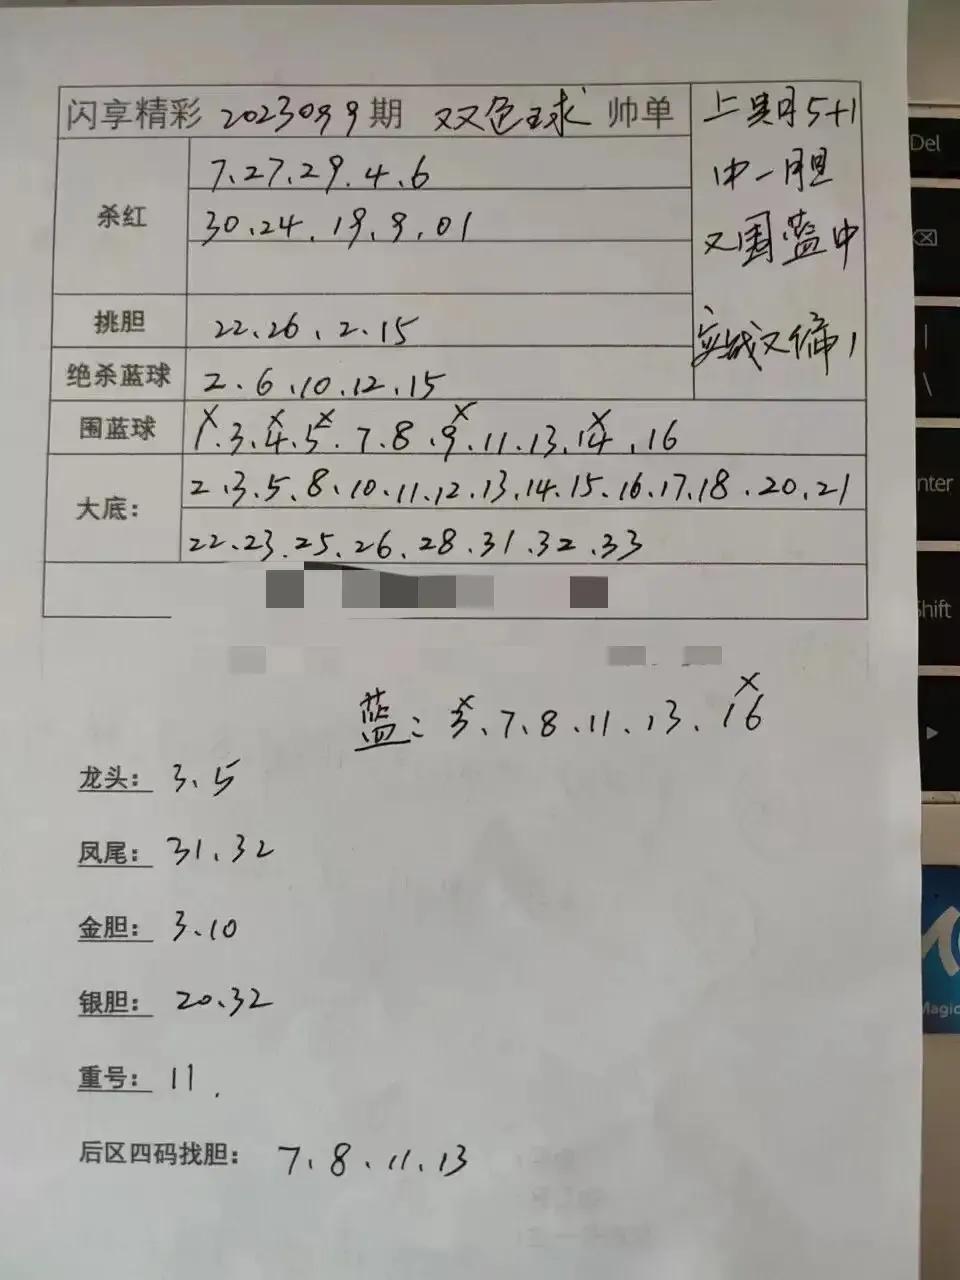 闪享精彩 2023099期 双色球 帅单
上期5+1
中一胆
又围蓝中
实战又 1
杀红
7.27.29.4.6
30.24.19.9.01
挑胆 22.26.2.15
绝杀蓝球 2.6.10.12.15
围蓝球 1.3.4.5.7.8.9.11.13.14.16
大底:
2.3.5.8.10.11.12.13.14.15.16.17.18.20.21
22.23.25.26.28.31.32.33
蓝:3.7.8.11.13.16
龙头: 3.5
凤尾: 31.32
金胆: 3.10
银胆: 20.32
重号: 11.
后区四码找胆: 7.8.11.13
Del
Enter
Shift
Magic